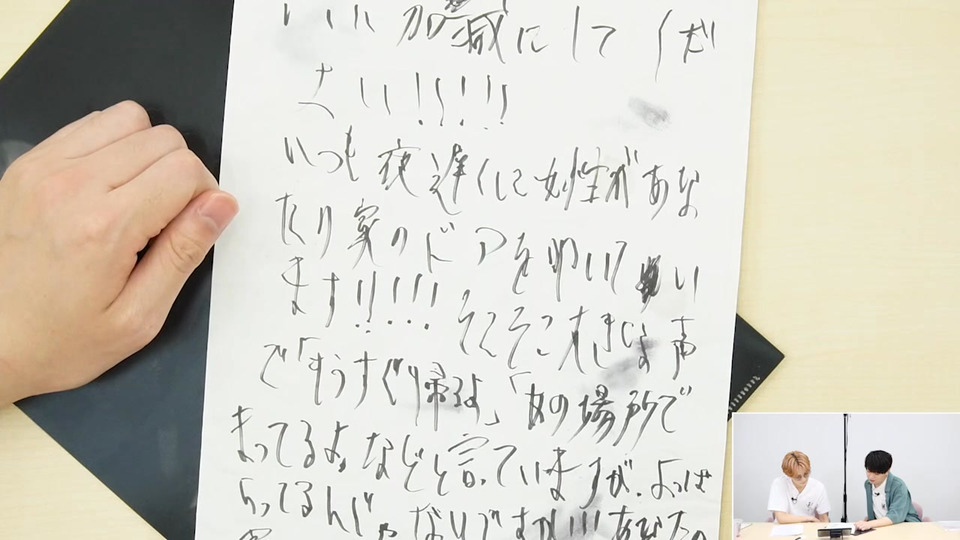 いい加減にしてくだ
さい!!!!!
いつも夜遅くして女性があな
たの家のドアを叩いてい
ます!!!!!、そこそこ大きな声
で「もうすぐ帰るよ」「あの場所で
まってるよ」などと言っていますが、よっぱ
らってるんじゃないですか!!!あなたの